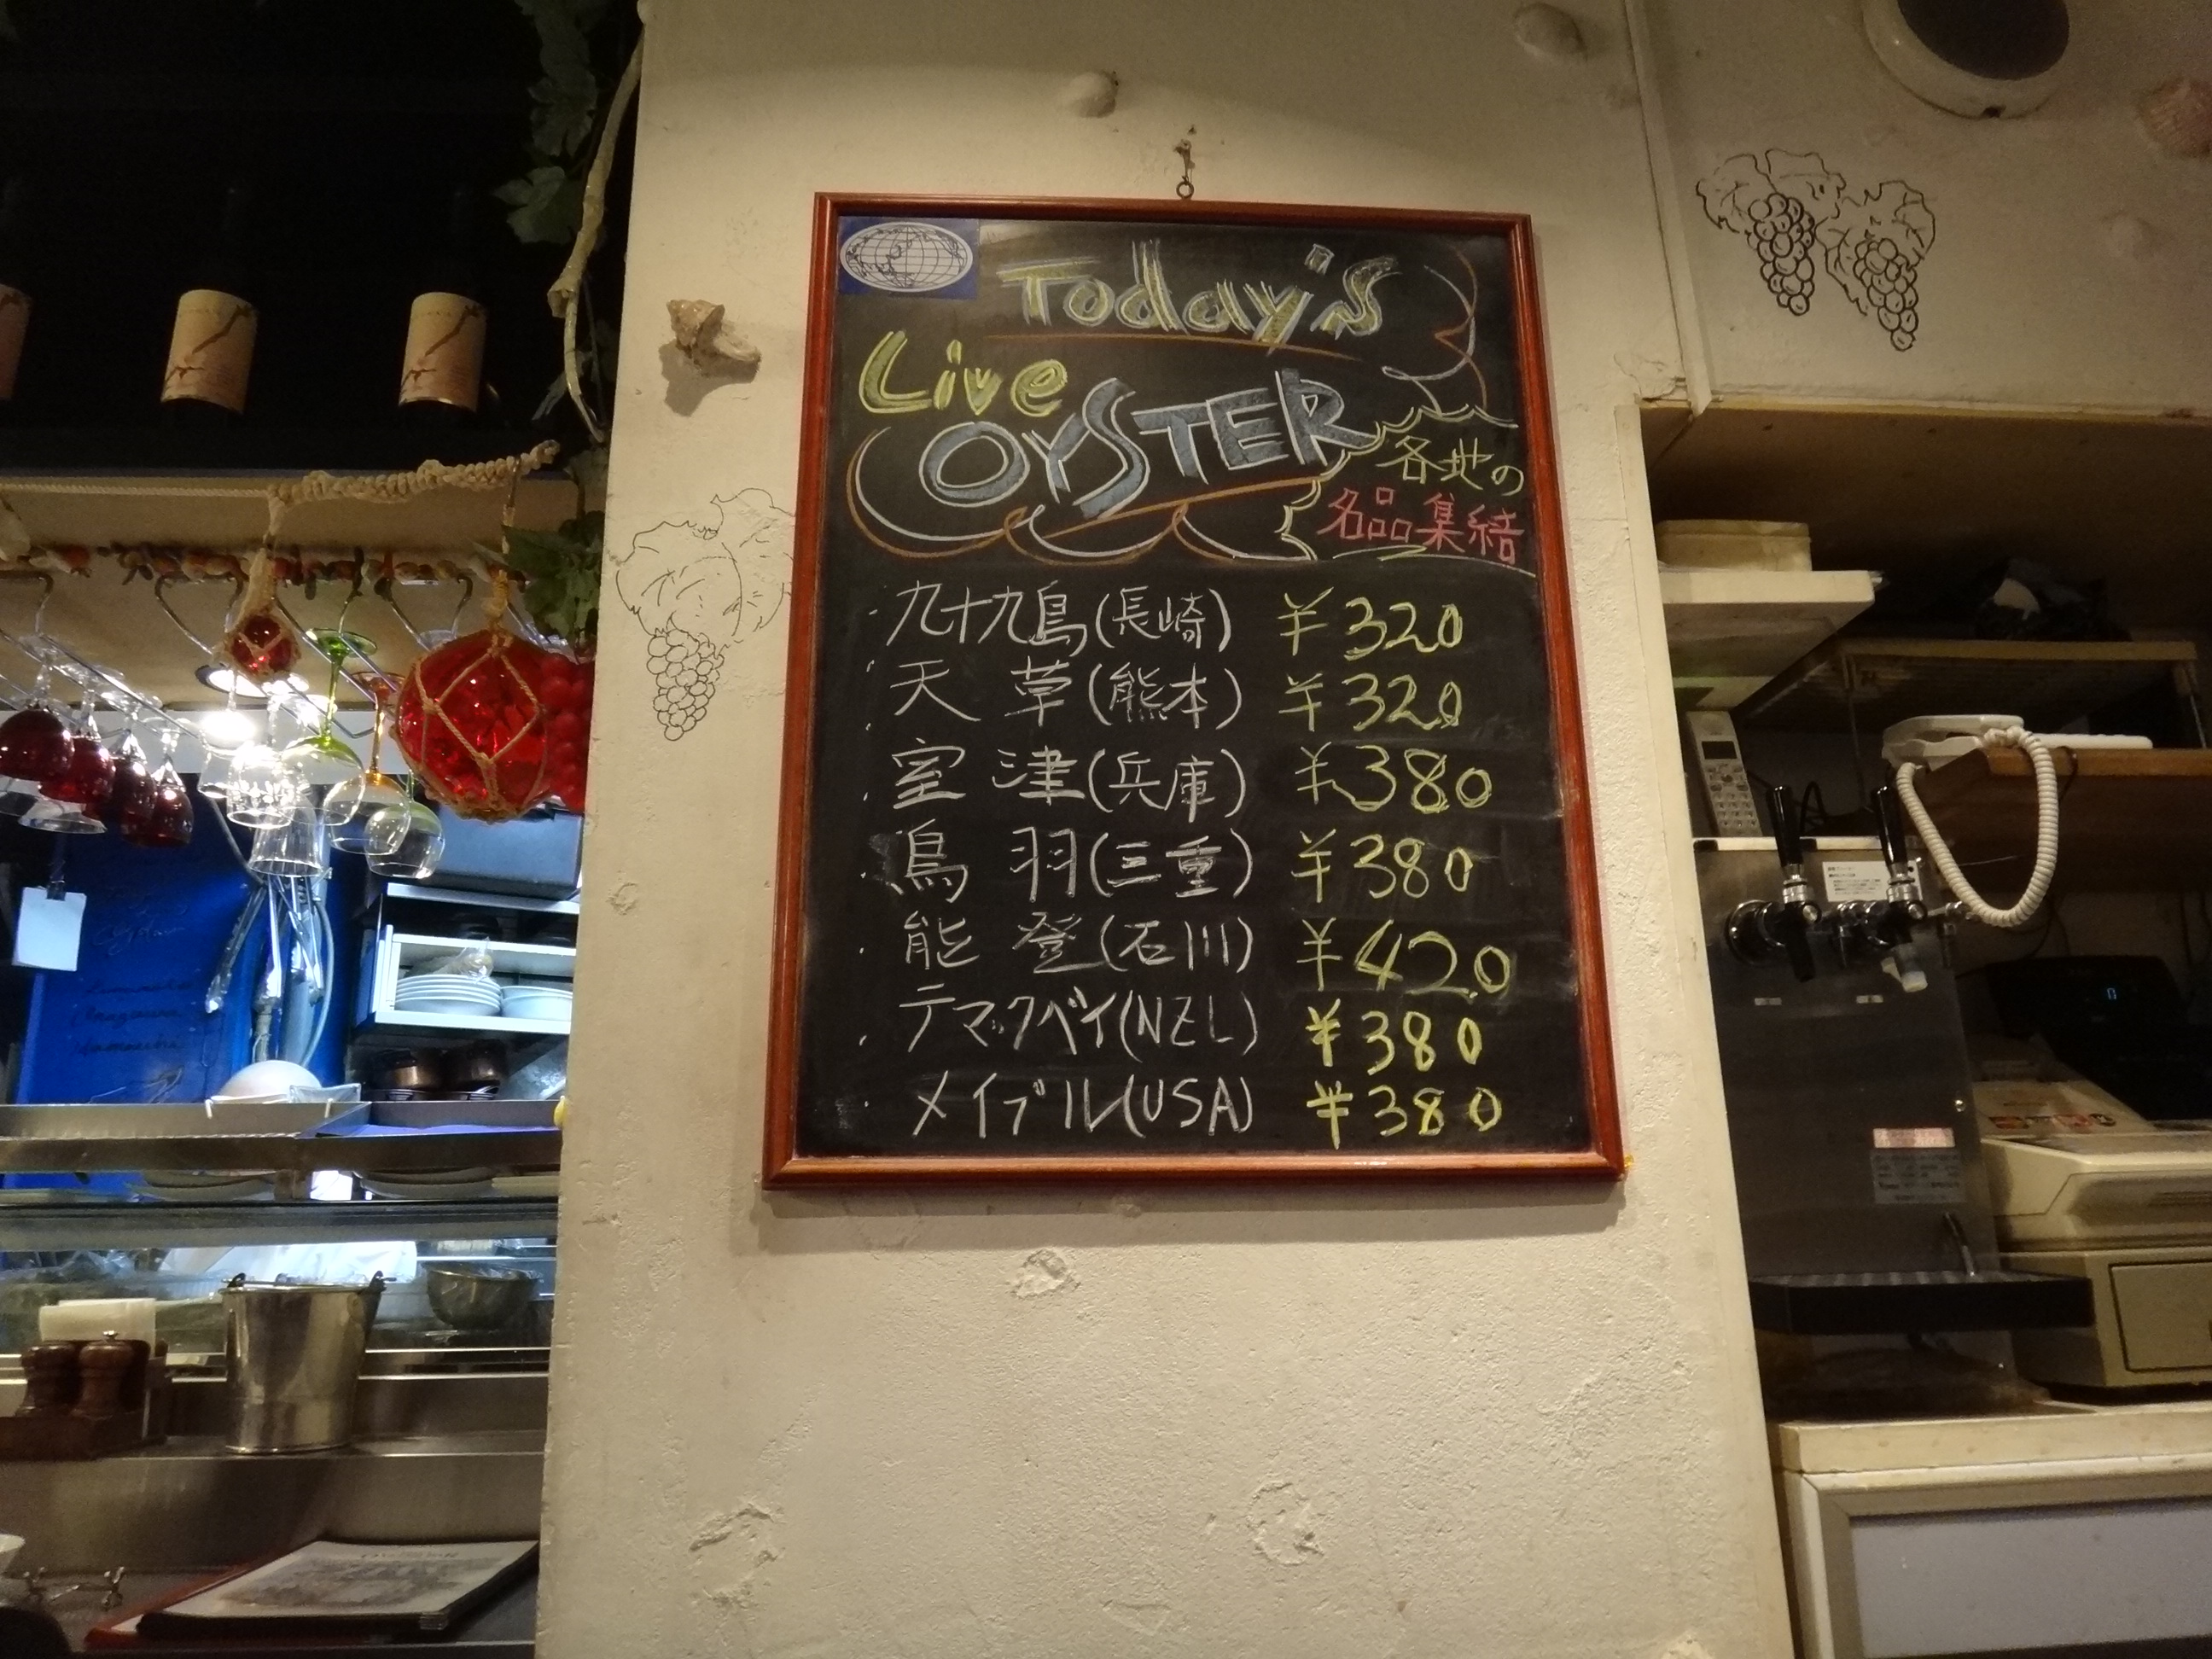 Today's
Live
OYSTER
各地の
名品集結
・九十九島(長崎) ¥320
・天草(熊本) ¥320
・室津(兵庫) ¥380
・鳥羽(三重) ¥380
・能登(石川) ¥420
・テマックベイ(NZL) ¥380
・メイプル(USA) ¥380